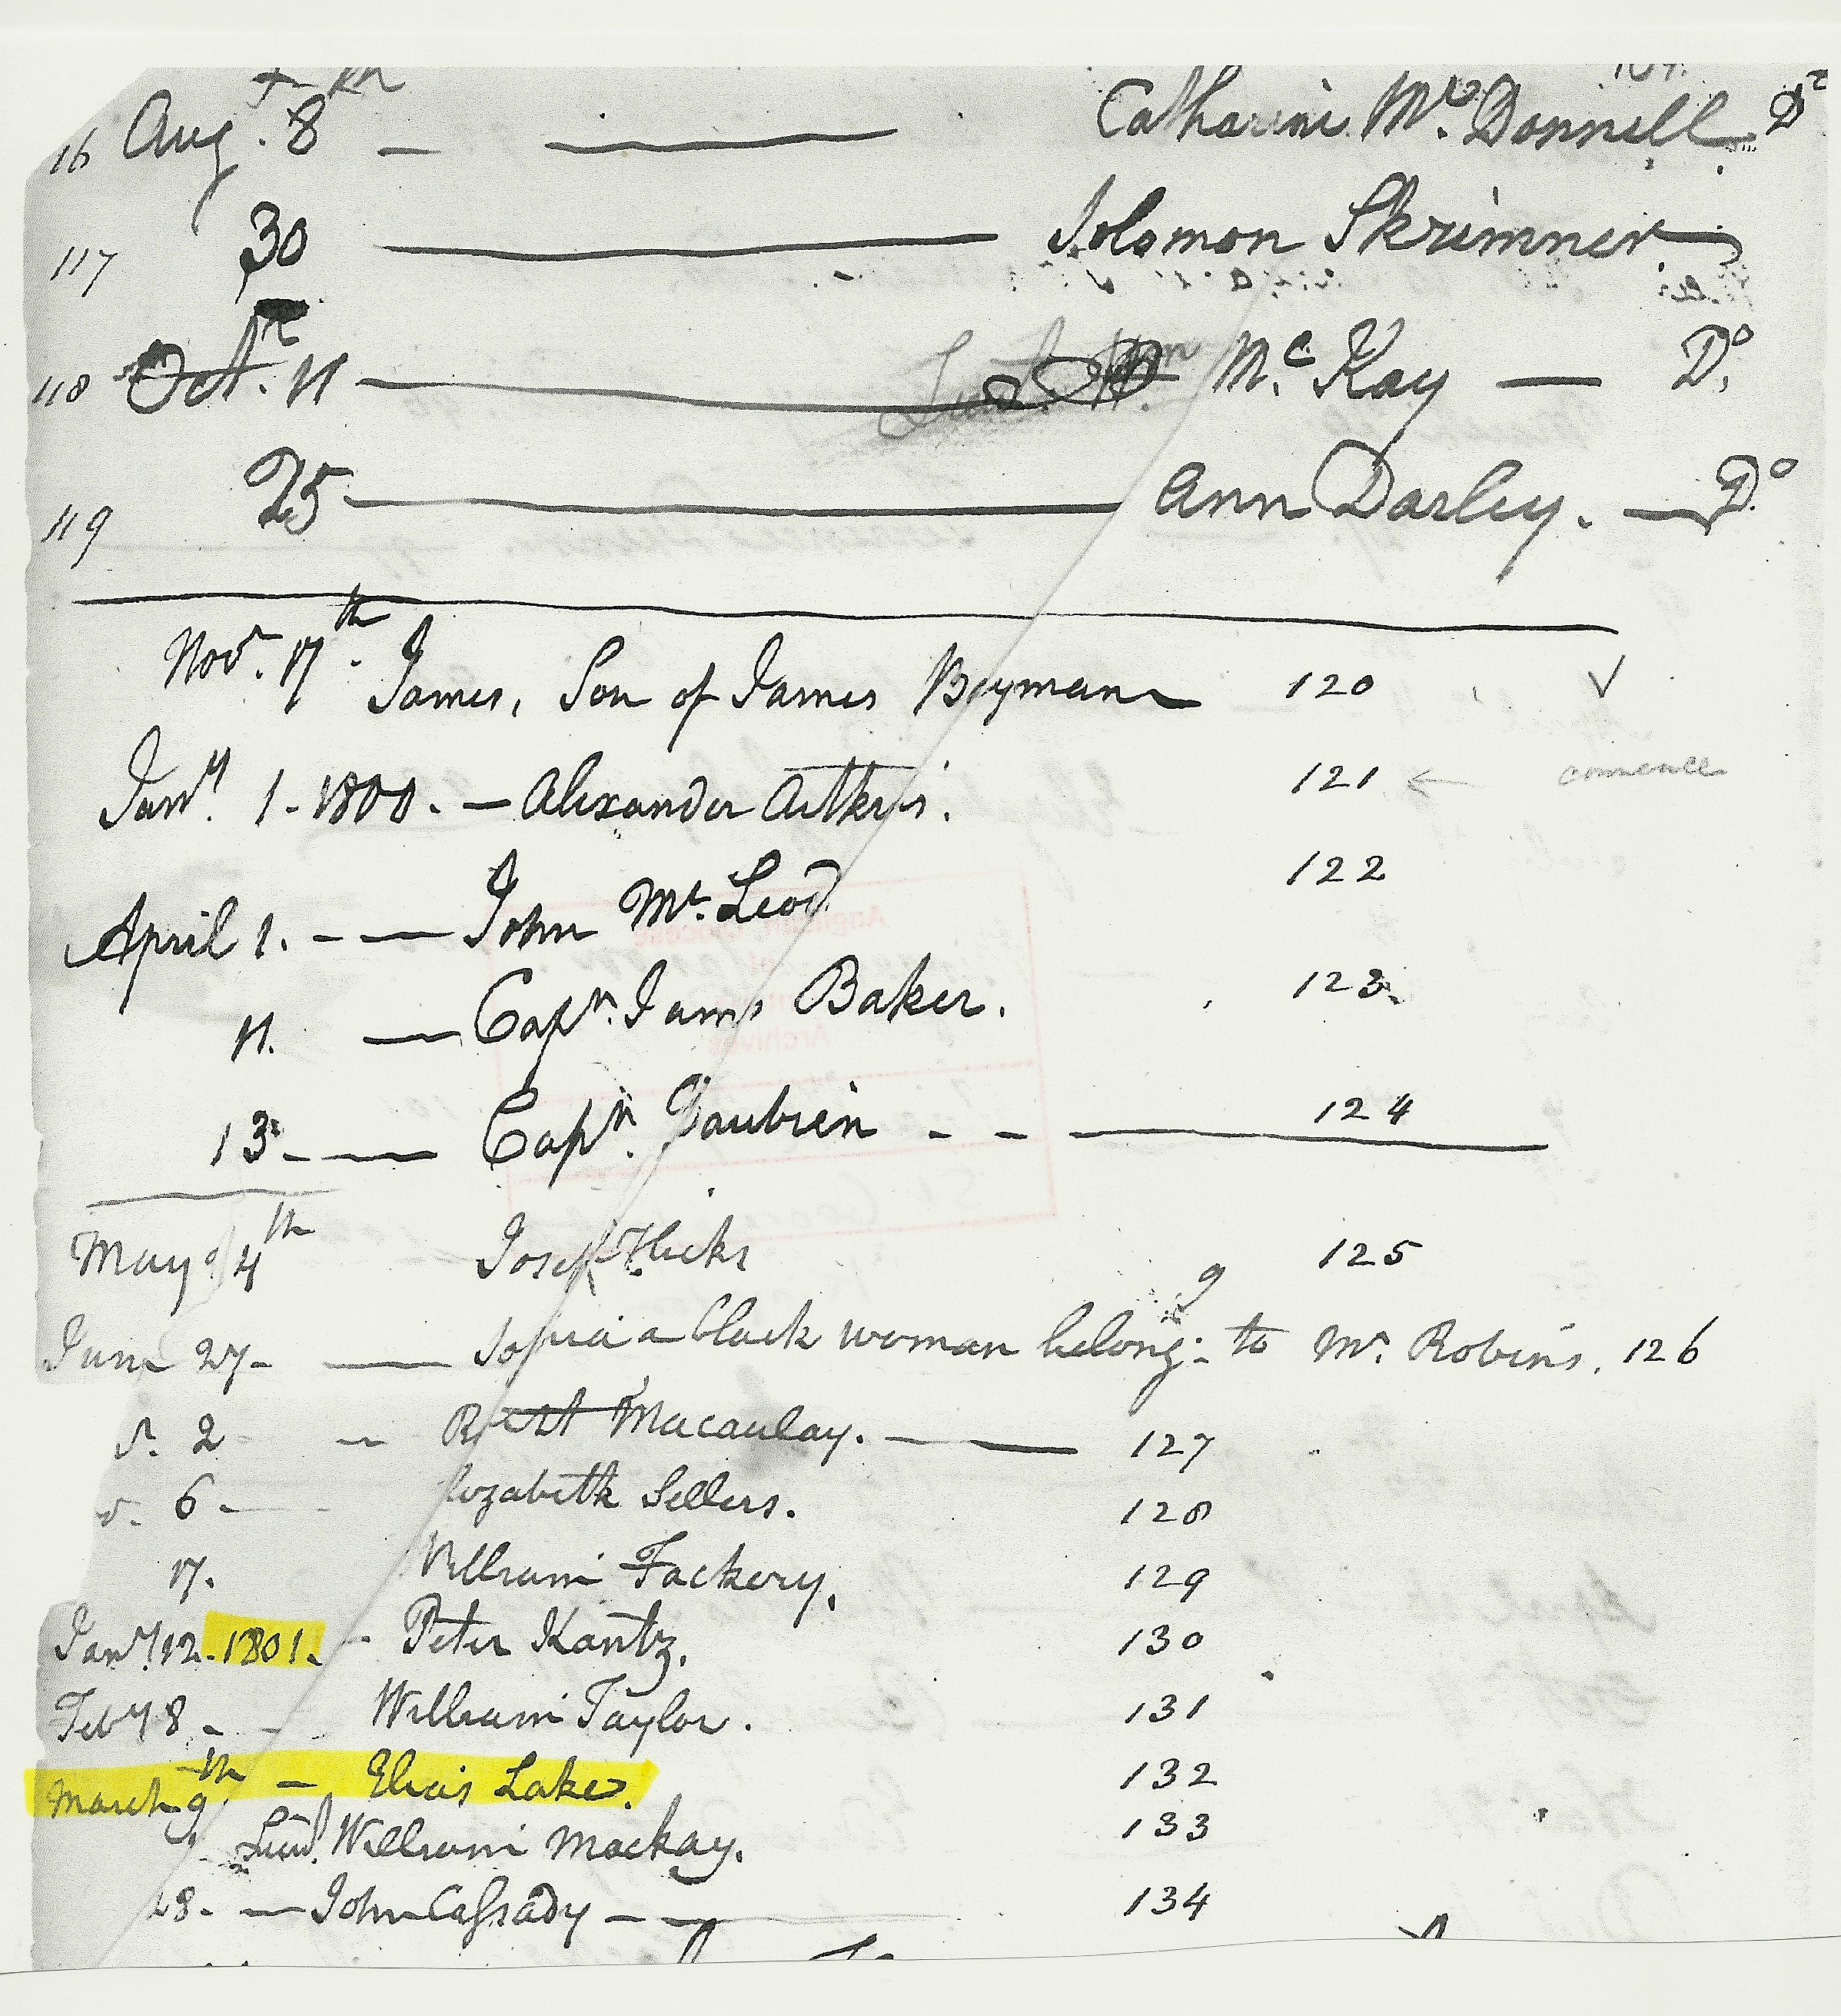 16 Aug. 8 — — Catharine Mc. Donnell. Do
117 30 — Solomon Skrimner
118 Octr. 11 — Mc. Kay — Do.
119 25 — Ann Darley. — Do
Novr. 17th. James, Son of James Baymann 120 ✓
Jany. 1. 1800. — Alexander Aitkens. 121 ← comence
April 1. — — John Mc. Leod 122
11. — Captn. James Baker. 123.
13. — — Captn. Gaubrein - - — 124
May 4th Joseph Hicks 125
June 27 — Sophia a black woman belong:g to Mr. Robins. 126
r. 2 — Robt Macaulay. — — 127
r. 6 - Elizabeth Sellers. 128
17. William Fackery. 129
Jany 12. 1801. - Peter Kantz. 130
Feby 8 - - William Taylor. 131
March 9th — Elias Lake. 132
Lieut. William Mackay. 133
28. — John Cassady — — 134